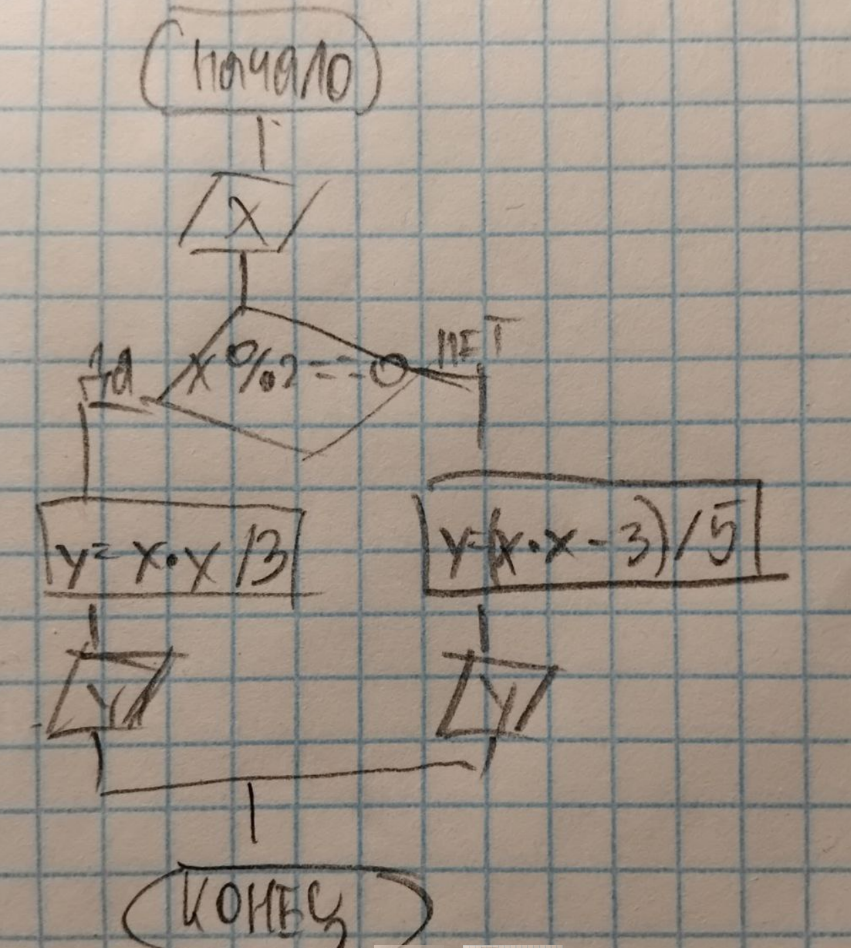 начало
x
x % 2 == 0
да
нет
y = x · x / 3
y = (x · x - 3) / 5
y
y
конец